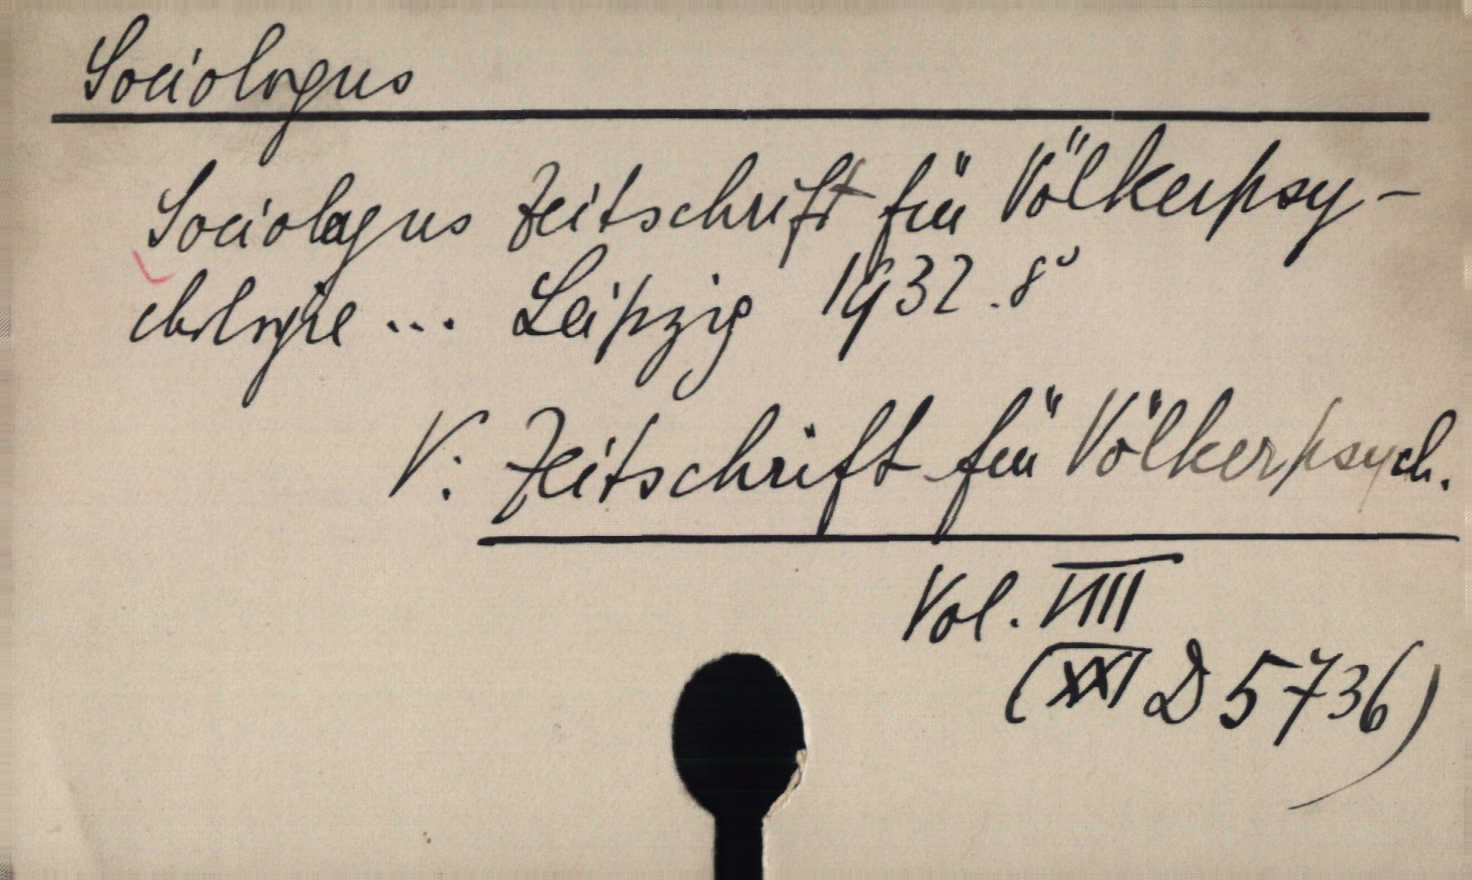 Sociologus
Sociologus Zeitschrift für Völkerpsy-
chologie ... Leipzig 1932. 8°
V: Zeitschrift für Völkerpsych.
Vol. VIII
(XXI D 5736)